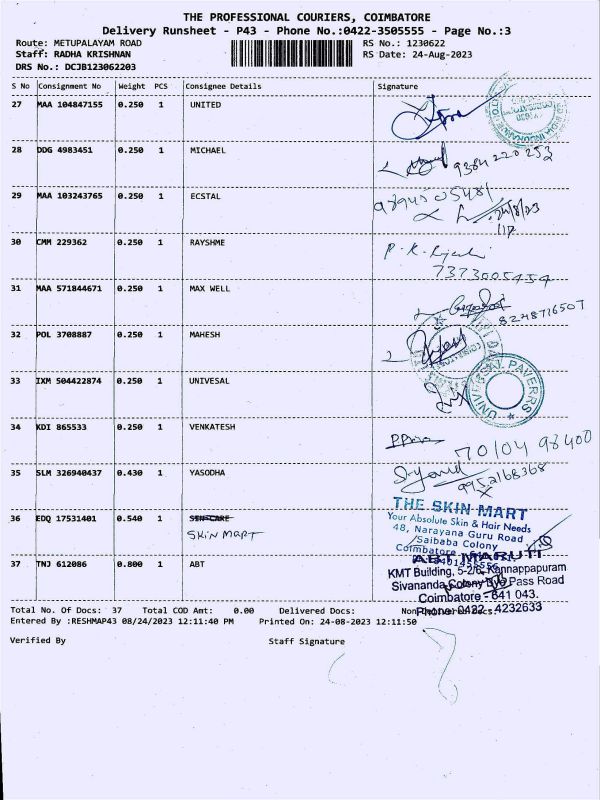 THE PROFESSIONAL COURIERS, COIMBATORE
Delivery Runsheet - P43 - Phone No.:0422-3505555 - Page No.:3
Route: METUPALAYAM ROAD RS No.: 1230622
Staff: RADHA KRISHNAN RS Date: 24-Aug-2023
DRS No.: DCJB123062203
S No Consignment No Weight PCS Consignee Details Signature
27 MAA 104847155 0.250 1 UNITED
28 DDG 4983451 0.250 1 MICHAEL
9384220253
29 MAA 103243765 0.250 1 ECSTAL
24/8/23
30 CMM 229362 0.250 1 RAYSHME
7373005454
31 MAA 571844671 0.250 1 MAX WELL
8248716507
32 POL 3708887 0.250 1 MAHESH
33 IXM 504422874 0.250 1 UNIVESAL
UNIVERSAL PAVERRS
34 KDI 865533 0.250 1 VENKATESH
70104 98400
35 SLM 326940437 0.430 1 YASODHA
9952168368
THE SKIN MART
36 EDQ 17531401 0.540 1
Your Absolute Skin & Hair Needs
48, Narayana Guru Road
SKIN MART
Saibaba Colony
Coimbatore
37 TNJ 612086 0.800 1 ABT
ABT MARUTI
KMT Building, 5-2/6, Kannappapuram
Sivananda Colony Bye Pass Road
Coimbatore - 641 043.
Phone: 0422 - 4232633
Total No. Of Docs: 37 Total COD Amt: 0.00 Delivered Docs:
Entered By :RESHMAP43 08/24/2023 12:11:40 PM Printed On: 24-08-2023 12:11:50
Verified By Staff Signature